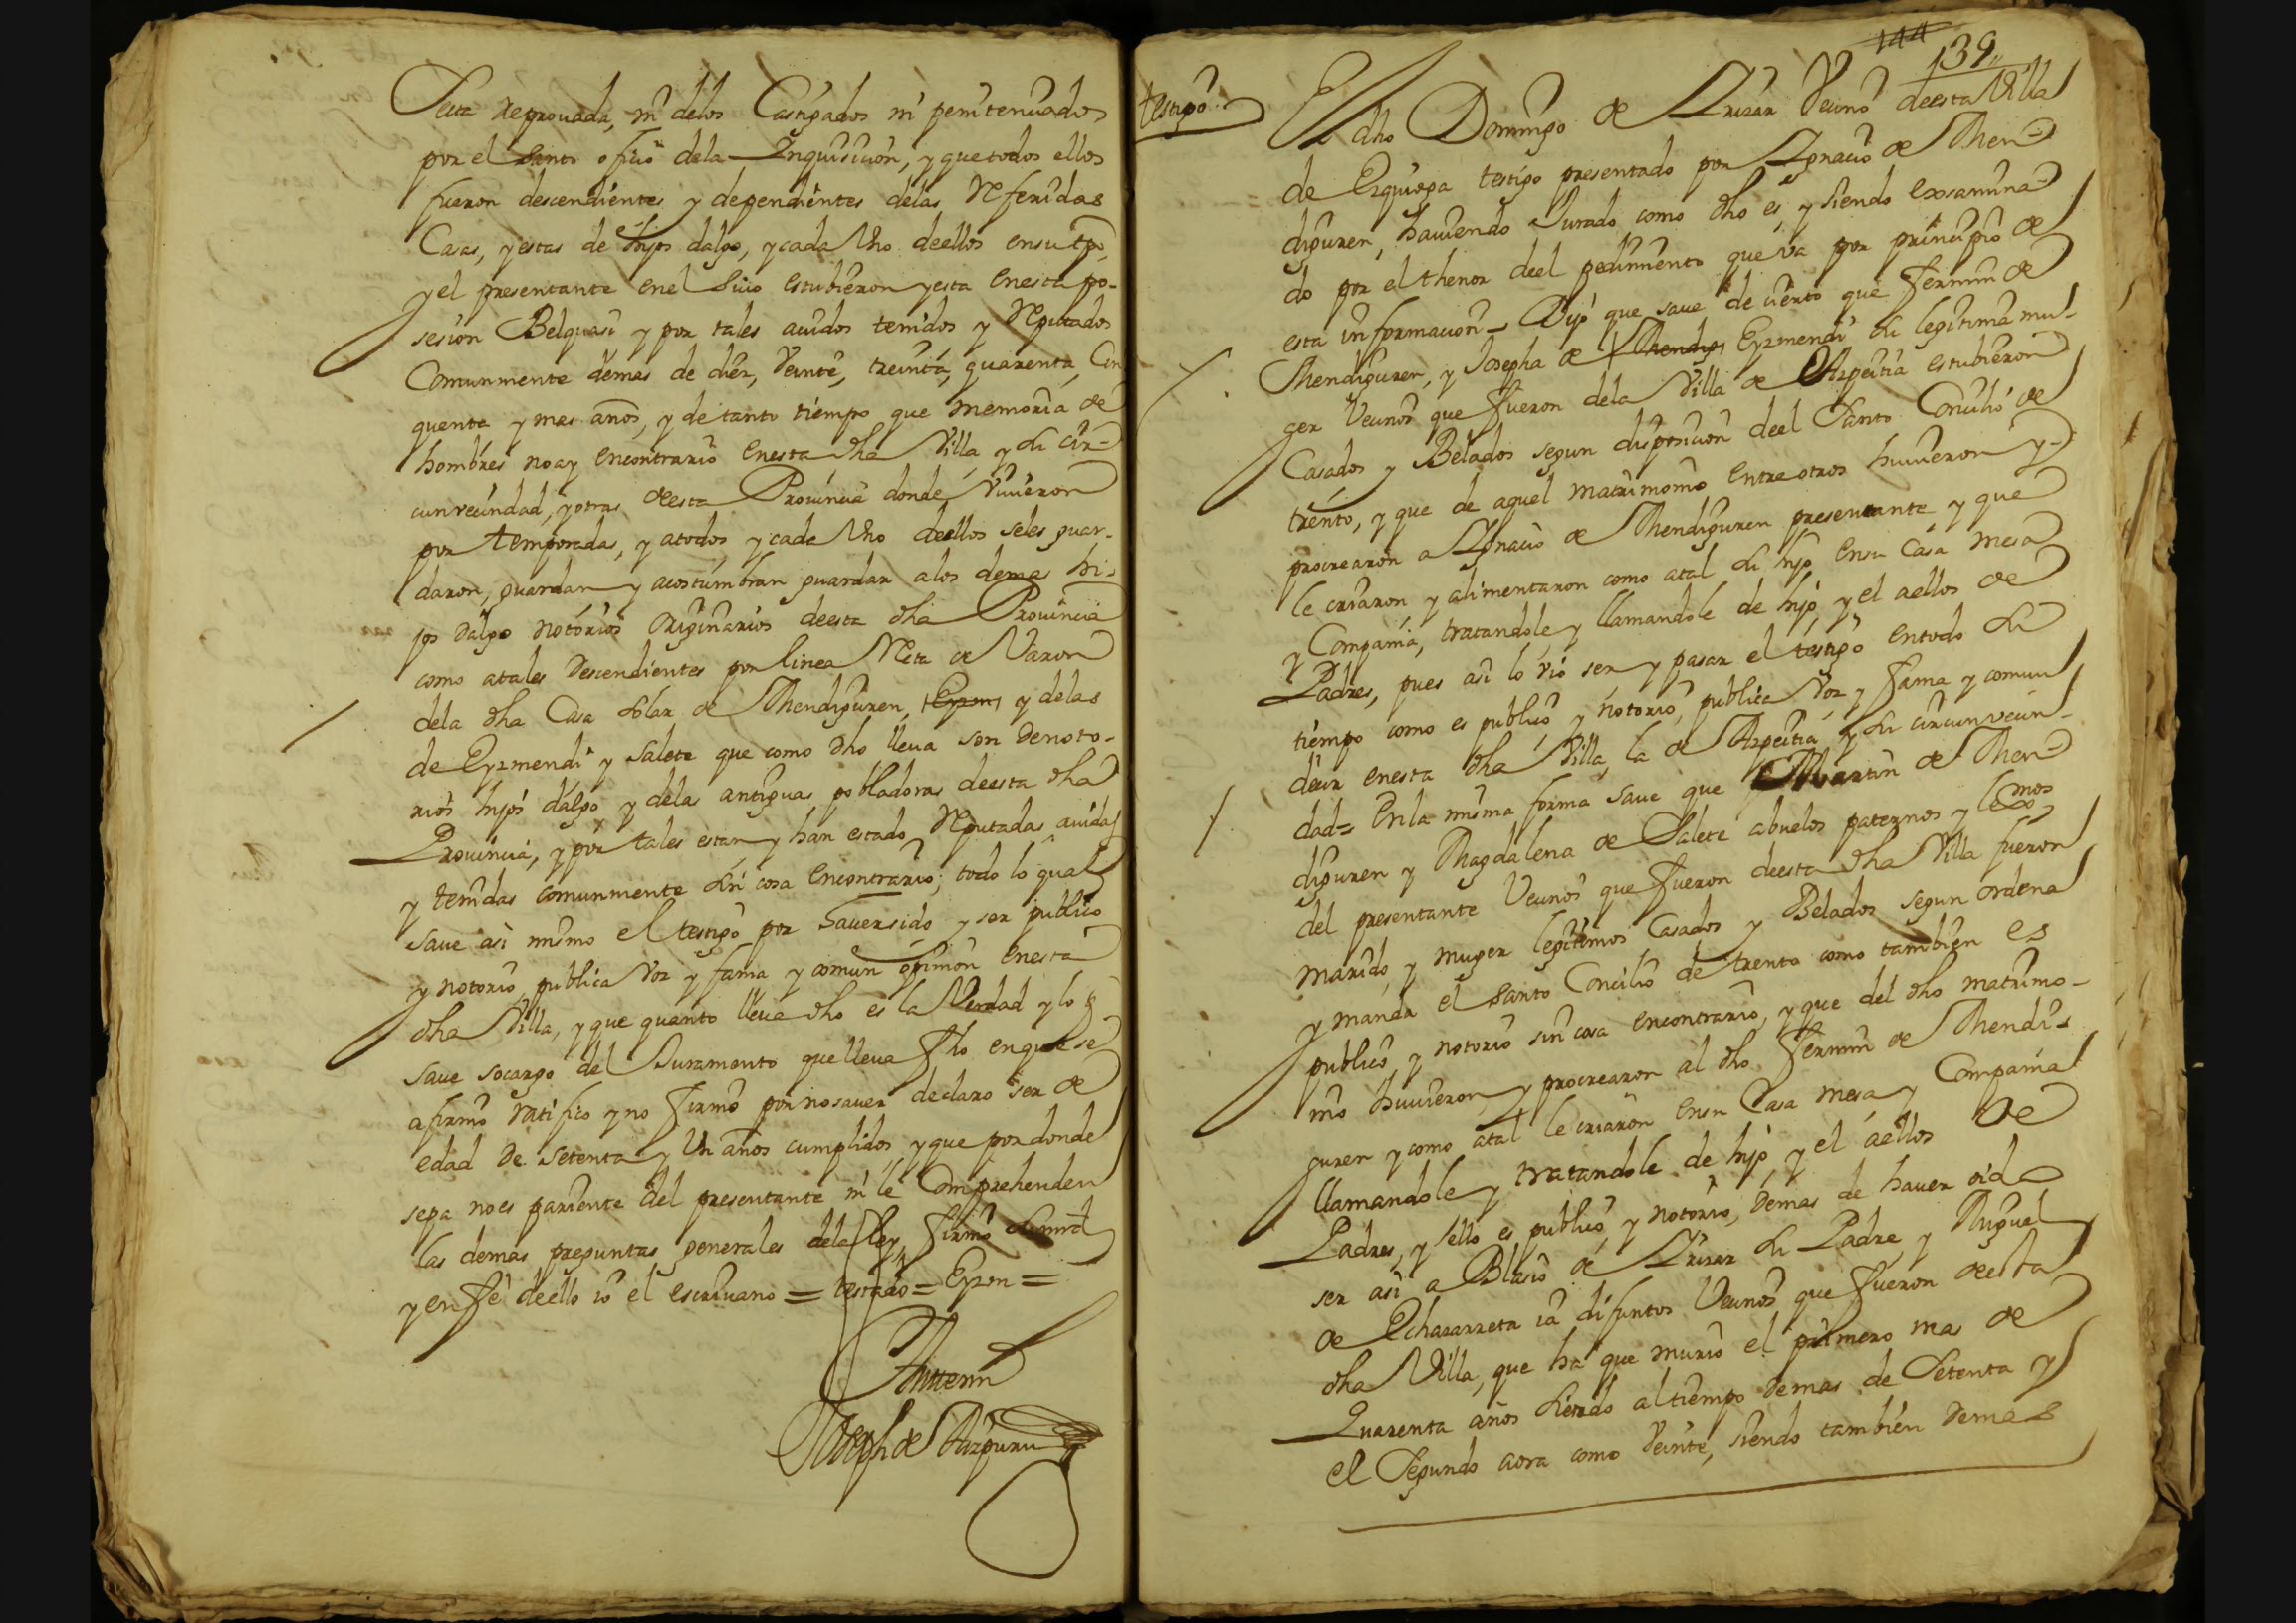 Secta reprouada, ni delos Castigados ni penitenciados
por el Santo oficio dela Inquisicion, y que todos ellos
fueron descendientes y dependientes delas Referidas
Casas, y estas de hijos dalgo, y cada Vno deellos ensu tpo,
y el presentante enel Suio estubieron y esta enesta po-
sesion Belquasi y por tales auidos tenidos y Reputados
Comunmente demas de diez, Veinte, treinta, quarenta, Cin
quenta y mas años, y de tanto tiempo que memoria de
hombres noay encontrario enesta dha Villa y Su cir-
cunvecindad, y otras deesta Prouincia donde Viuieron
por temporadas, y atodos y cada Vno deellos seles guar-
daron, guardan y acostumbran guardar alos demas hi-
jos dalgo notorios Originarios deesta dha Prouincia
como atales Descendientes por linea Recta de Varon
dela dha Casa Solar de Mendiguren, Eyzm y delas
de Eyzmendi y Salete que como dho lleua son denoto-
rios hijos dalgo y delas antiguas pobladoras deesta dha
Prouincia, y por tales estan y han estado Reputadas auidas
y tenidas comunmente Sin cosa encontrario; todo lo qual
saue asi mismo el testigo por hauersido y ser publico
y notorio publica Voz y fama y comun opinion enesta
dha Villa, y que quanto lleua dho es la Verdad y lo q
saue socargo del Juramento que lleua fho enque se
afirmo ratifico y no firmo por nosauer declaro ser de
edad de setenta y Un años cumplidos y que por donde
sepa noes pariente del presentante ni le Comprehenden
las demas preguntas generales dela ley, firmo Sumrd
y enfe deello io el escriuano = testado = Eyzm =
Joseph de Aizpuru
144
139
testigo
El dho Domingo de Vecino deesta Villa
de Ezquioga testigo presentado por Ignacio de Men
diguren, hauiendo Jurado como dho es, y siendo exsamina-
do por el thenor deel pedimiento que va por principio de
esta informacion = Dijo que saue de cierto que Fermin de
Mendiguren, y Josepha de Mendig Eyzmendi su legitima mu-
ger Vecinos que fueron dela Villa de Azpeitia estubieron
Casados y Belados segun disposicion deel Santo Concilio de
trento, y que de aquel matrimonio entre otros huuieron y-
procrearon a Ignacio de Mendiguren presentante y que
le criaron y alimentaron como atal su hijo ensu Casa mesa
y Compania, tratandole y llamandole de hijo y el aellos de
Padres, pues asi lo vio ser y pasar el testigo entodo su
tiempo como es publico y notorio, publica Voz y fama y comun
decir enesta dha Villa, la de Azpeitia y su circunvecin-
dad = Enla misma forma saue que Martin de Men
diguren y Magdalena de Salete abuelos paternos y lexmos
del presentante Vecinos que fueron deesta dha Villa fueron
marido, y muger legitimos Casados y Belados segun ordena
y manda el Santo Concilio de trento como tambien es
publico y notorio sin cosa encontrario, y que del dho matrimo-
nio huuieron y procrearon al dho Fermin de Mendi-
guren y como atal le criaron ensu Casa mesa y Compania
llamandole y tratandole de hijo y el aellos de
Padres, y sello es publico y notorio, demas de hauer oido
ser asi a Blasio de su Padre y Miguel
de Echazarreta ia difuntos Vecinos que fueron deesta
dha Villa, que ha que murio el primero mas de
Quarenta años Siendo altiempo demas de Setenta y
el Segundo aora como Veinte, siendo tambien demas